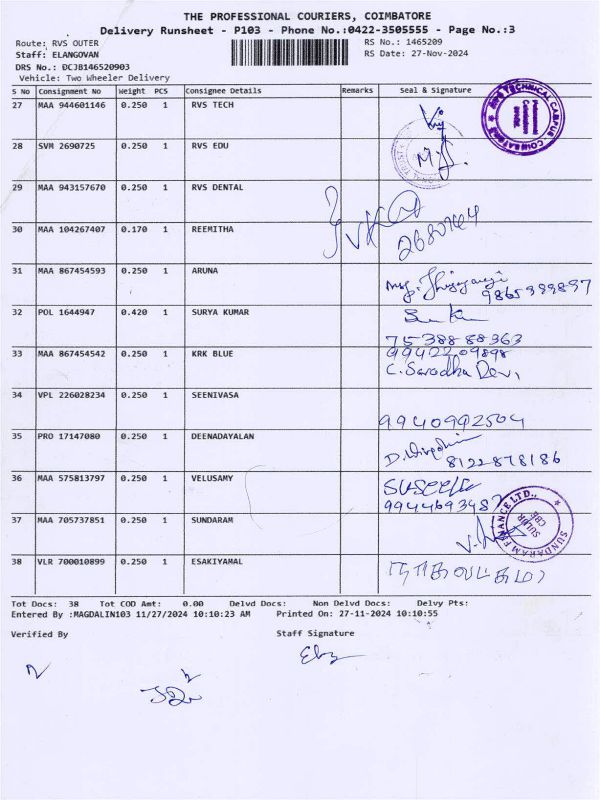 THE PROFESSIONAL COURIERS, COIMBATORE
Delivery Runsheet - P103 - Phone No.:0422-3505555 - Page No.:3
Route: RVS OUTER RS No.: 1465209
Staff: ELANGOVAN RS Date: 27-Nov-2024
DRS No.: DCJB146520903
Vehicle: Two Wheeler Delivery
S No Consignment No Weight PCS Consignee Details Remarks Seal & Signature
27 MAA 944601146 0.250 1 RVS TECH
28 SVM 2690725 0.250 1 RVS EDU
29 MAA 943157670 0.250 1 RVS DENTAL
30 MAA 104267407 0.170 1 REEMITHA
31 MAA 867454593 0.250 1 ARUNA
32 POL 1644947 0.420 1 SURYA KUMAR
7538888363
33 MAA 867454542 0.250 1 KRK BLUE
9942209898
C. Sarodha Devi
34 VPL 226028234 0.250 1 SEENIVASA
9940992504
35 PRO 17147080 0.250 1 DEENADAYALAN
8122878186
36 MAA 575813797 0.250 1 VELUSAMY
9944693487
37 MAA 705737851 0.250 1 SUNDARAM
SUNDARAM FINANCE LTD., SULUR CBE
38 VLR 700010899 0.250 1 ESAKIYAMAL
Tot Docs: 38 Tot COD Amt: 0.00 Delvd Docs: Non Delvd Docs: Delvy Pts:
Entered By :MAGDALIN103 11/27/2024 10:10:23 AM Printed On: 27-11-2024 10:10:55
Verified By Staff Signature